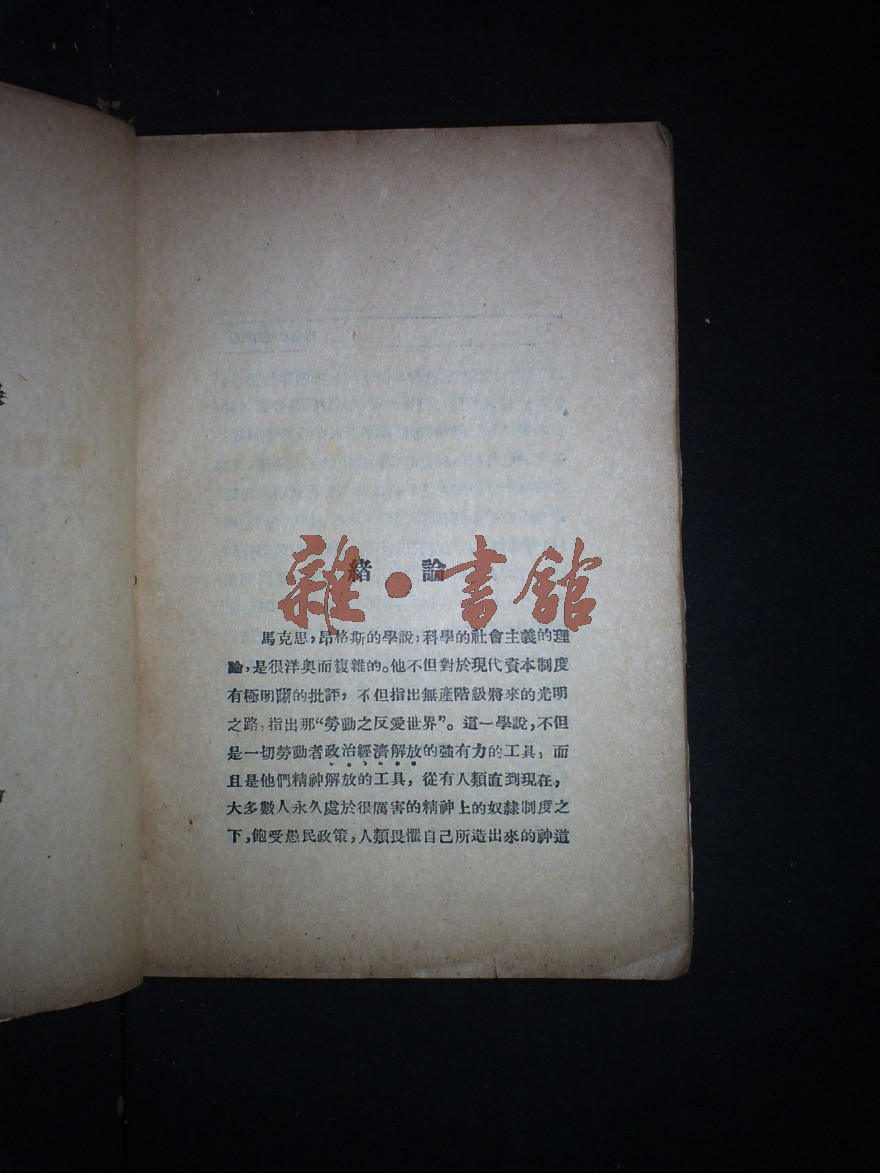 緒論
雜·書館
馬克思，昂格斯的學說，科學的社會主義的理
論，是很洋奧而複雜的。他不但對於現代資本制度
有極明闢的批評，不但指出無產階級將來的光明
之路，指出那“勞動之反愛世界”。這一學說，不但
是一切勞動者政治經濟解放的強有力的工具，而
且是他們精神解放的工具，從有人類直到現在，
大多數人永久處於很厲害的精神上的奴隸制度之
下，飽受愚民政策，人類畏懼自己所造出來的神道